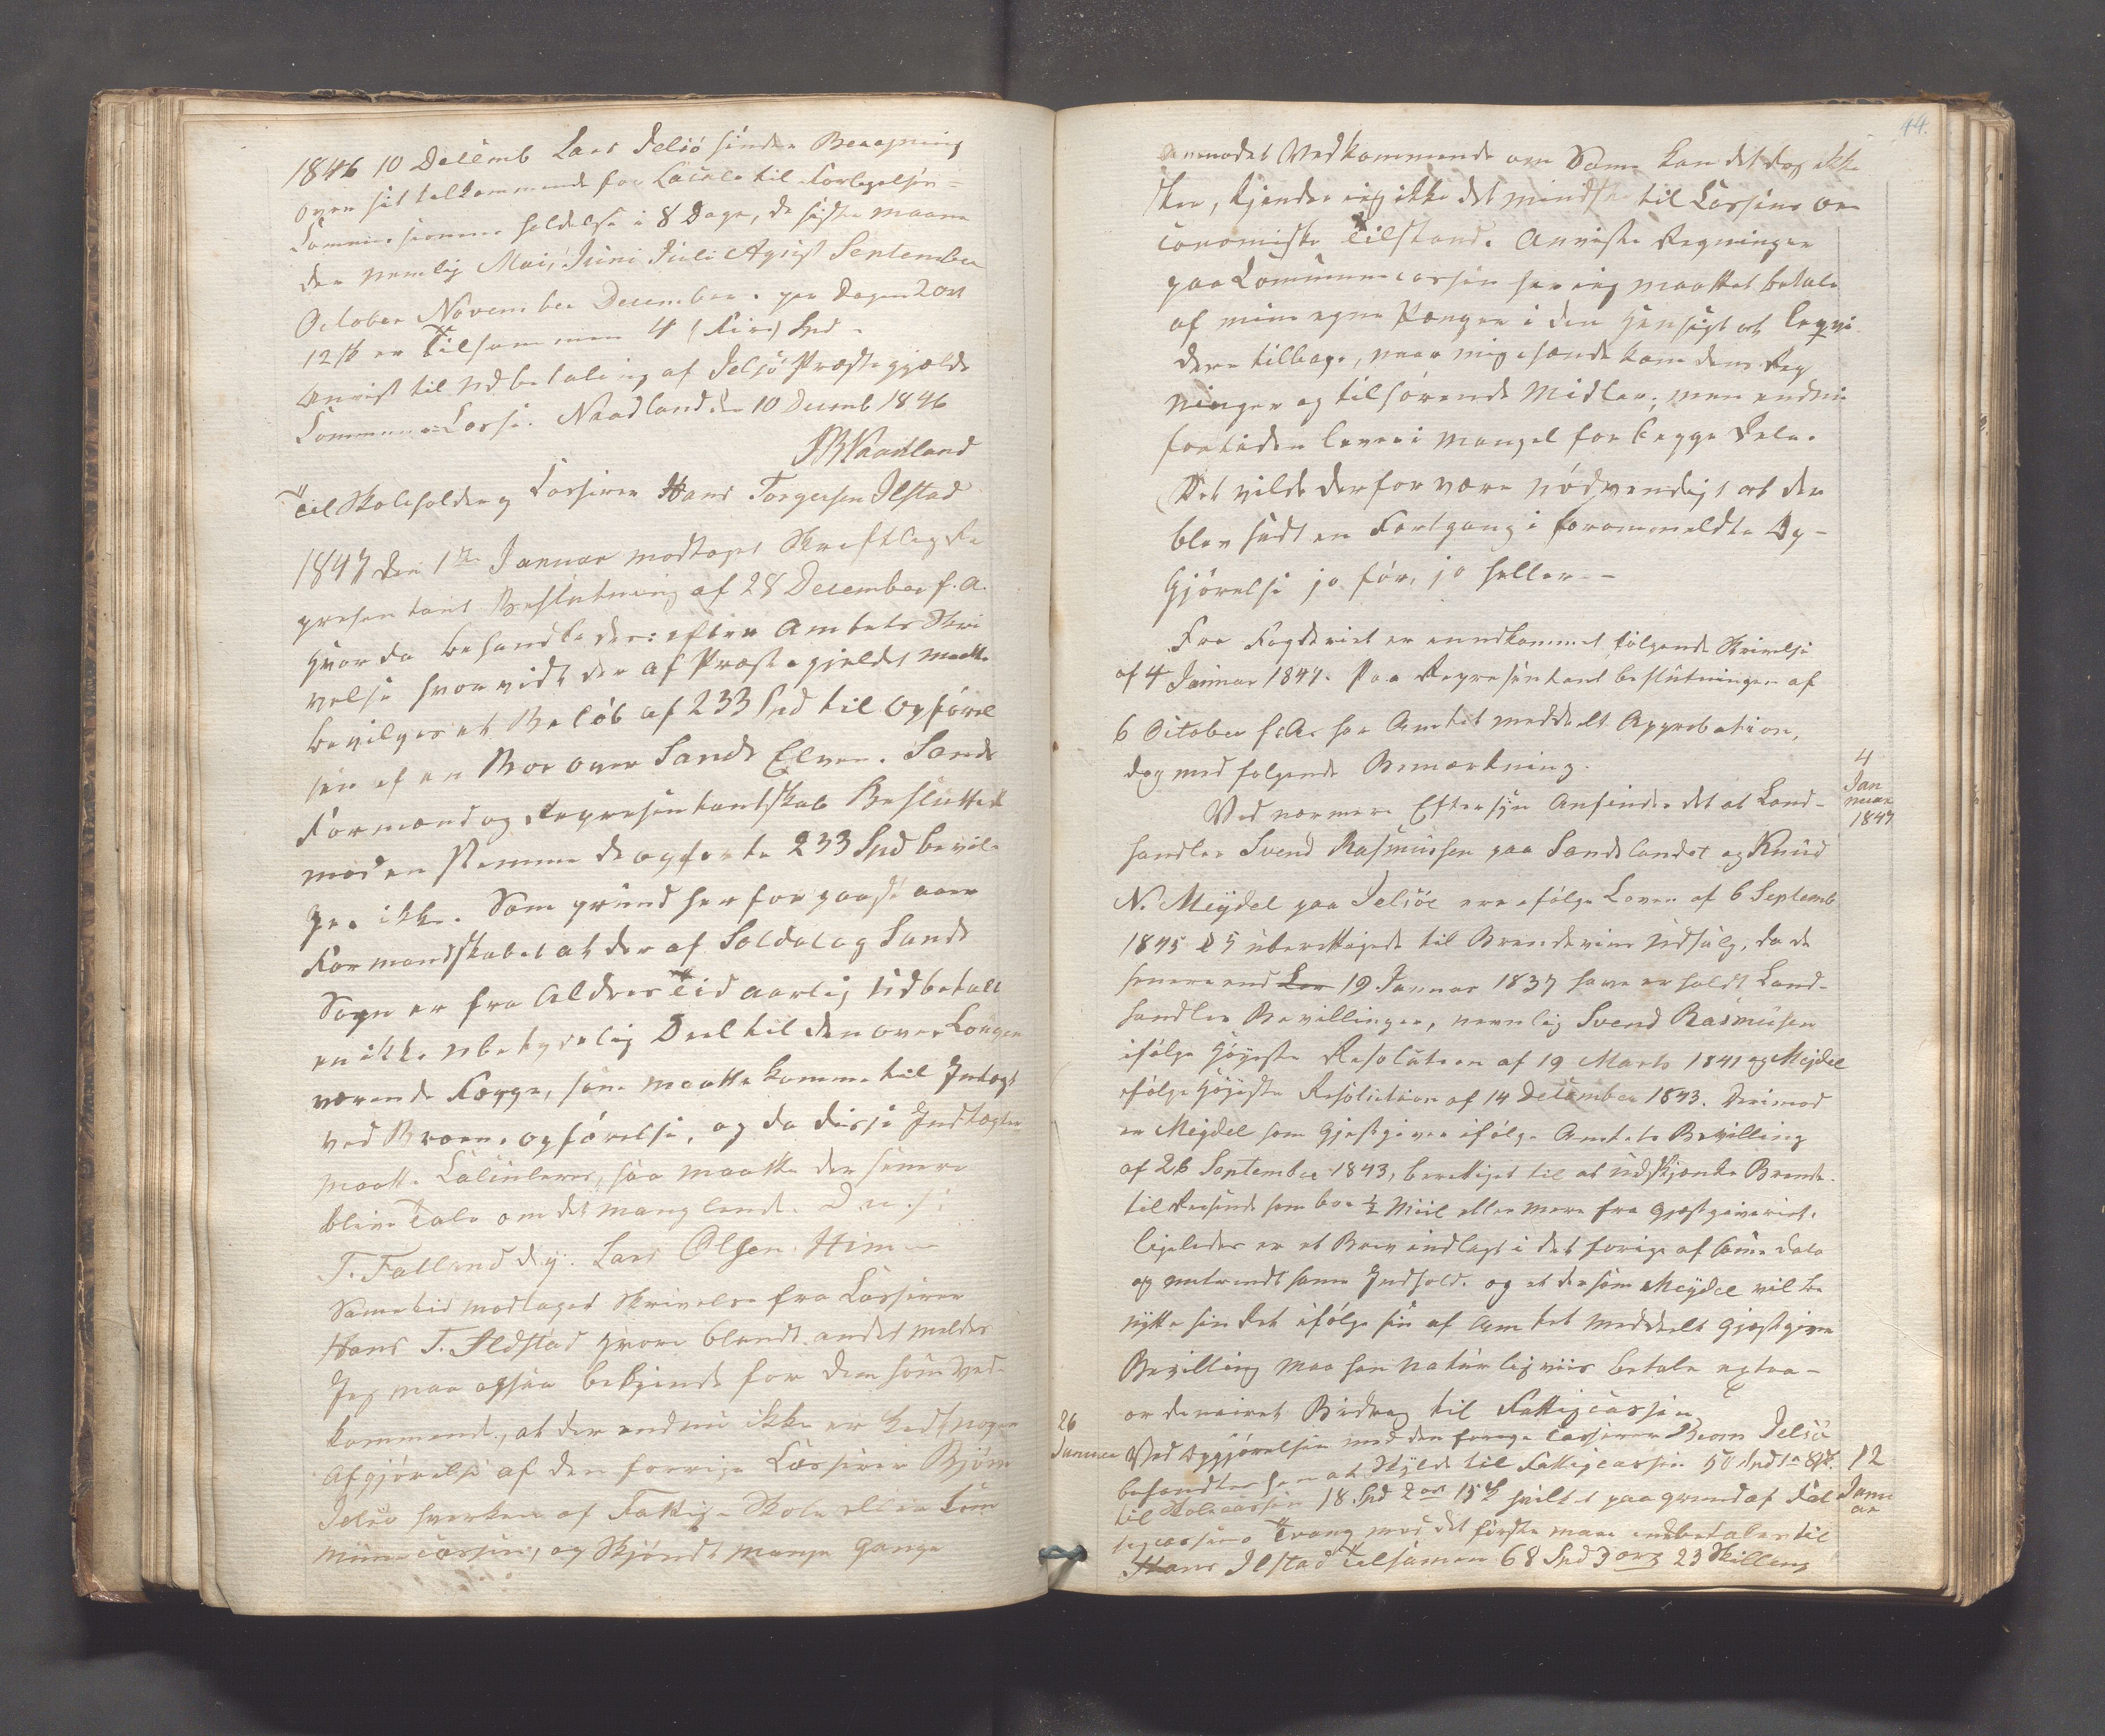 1846 10 Decemb Lars Jelsö sender Beregning
over sit tilkommende for Locale til Forligelses=
Commissionens holdelse i 8 Dage, de sidste maane
der nemlig Mai, Juni Juli Agust September
October November December. per Dagen 2 ort
12 sk er Tilsammen 4 (Fire) Spd -
Anvist til Udbetaling af Jelsö Præstegjelds
Commune Casse. Naadland den 10 Decemb 1846
Naadland
Til Skoleholder og Casserer Hans Torgersen Ilstad
1847 Den 1ste Januar modtoges Skriftlig Re
presentant Beslutning af 28 December f. A.
hvor da behandledes: efter Ambtets Skri
velse hvorvidt der af Præstegjeldet maatte
bevilges et Beløb af 233 Spd til Opførel
sen af en Bro over Sands Elven. Sands
Formænd og Representantskab Besluttede
mod en Stemme de opførte 233 Spd bevil
ges ikke. Som grund herfor paastaaer
Formandskabet at der af Soldal og Sands
Sogn er fra Aldres Tid aarlig Udbetalt
en ikke ubetydelig Deel til den over Lougen
værende Færge, som maatte komme til Indtægt
ved Broens opførelse, og da disse Indtægter
maatte Calculeres, saa maatte der senere
blive Tale om det manglende. D. u. s:
T. Fatland d. y. Lars Olsen Him
Sametid modtaged Skrivelse fra Casserer
Hans T. Ildstad hvori blandt andet meldes
Jeg maa ogsaa bekjende for Dem som Ved-
kommende, at der endnu ikke er skedt nogen
Afgjørelse af den forrige Casserer Bjørn
Jelsø hverken af Fattig- Skole eller Com
mune cassen, og skjøndt mange Gange
44.
anmodet Vedkommende om Samme kan det dog ikke
skee, kjender jeg ikke det mindste til Cassens oe
conomiske Tilstand. Anviste Regninger
paa Communecassen har jeg maattet betale
af mine egne Penge i den Hensigt at leqvi
dere tilbage, naar mig ihænde kom dens Reg
ninger og tilhørende Midler; men endnu
fortiden lever i mangel for begge Dele.
Det vilde derfor være nødvendigt at der
blev sadt en Fortgang i forommeldte Op-
Gjørelse jo før, jo heller--
Fra Fogderiet er anndkommet følgende Skrivelse
af 4 Januar 1847. Paa Representant beslutningen af
6 October f. A. har Amtet meddelt Approbation,
dog med folgende Bemærkning.
4
Jan
nuar
1847
Ved nærmere Eftersyn Ansindes det at Land-
handler Svend Rasmussen paa Sandslandet og Knud
N. Meydel paa Jelsöe ere ifølge Loven af 6 Septemb
1845 § 5 uberettigede til Brendeviins Udsalg, da de
senere end 19 Januar 1837 have erholdt Land-
handler Bevillinger, nemlig Svend Rasmusen
ifølge Høyeste Resolution af 19 Marts 1841 og Mejdel
ifølge Høyeste Resolution af 14 December 1843. Derimod
er Meydel som Gjestgiver ifølge Amtets Bevilling
af 26 September 1843, berettiget til at udskjænke Brende.
til Reisende som boe ½ Miil eller mere fra Gjæstgiveriet.
ligeledes er et Brev indlagt i det forrige af samme dato
og mutandt same Indhold. og at dersom Meydel vil be
nytte sin Ret ifølge sin af Amtet meddelt Gjæstgiver
Bevilling maa han naturligviis betale extra-
or denairet Bidrag til Fattigcassen
26
Januar Ved Opgjørelsen med den forrige Casserer Beorn Jelsö
befandtes han at skylde til Fattigcassen 50 Spd
12
Janu
ar
til Skolecassen 18 Spd 2 ort 15 s hvilket paa grund af Fat
tigcassens Trang med det første maae indbetales til
Hans Ilstad Tilsamen 68 Spd 3 ort 23 Skilling